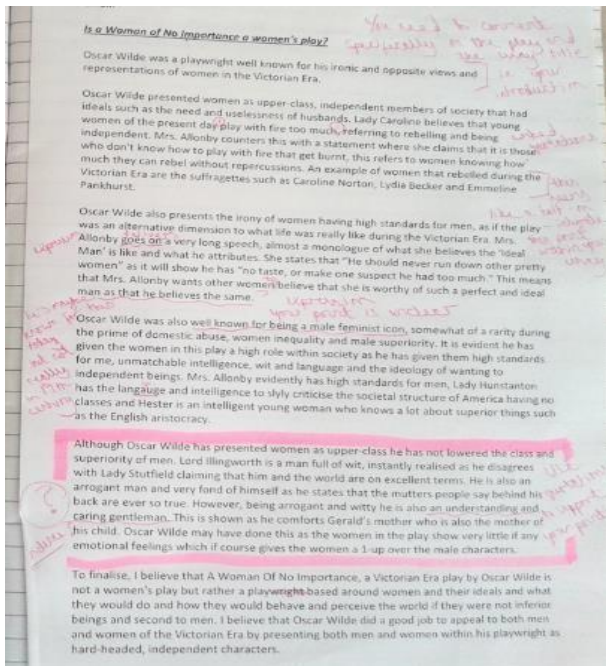 Is a Woman of No Importance a women's play?
You need to comment
specifically on the play and
the way
Oscar Wilde was a playwright well known for his ironic and opposite views and
representations of women in the Victorian Era.
Oscar Wilde presented women as upper-class, independent members of society that had
ideals such as the need and uselessness of husbands. Lady Caroline believes that young
women of the present day play with fire too much, referring to rebelling and being
independent. Mrs. Allonby counters this with a statement where she claims that it is those
who don't know how to play with fire that get burnt, this refers to women knowing how
much they can rebel without repercussions. An example of women that rebelled during the
Victorian Era are the suffragettes such as Caroline Norton, Lydia Becker and Emmeline
Pankhurst.
Oscar Wilde also presents the irony of women having high standards for men, as if the play
was an alternative dimension to what life was really like during the Victorian Era. Mrs.
Allonby goes on a very long speech, almost a monologue of what she believes the 'Ideal
Man' is like and what he attributes. She states that "He should never run down other pretty
women" as it will show he has "no taste, or make one suspect he had too much." This means
that Mrs. Allonby wants other women believe that she is worthy of such a perfect and ideal
man as that he believes the same.
your point is unclear
Oscar Wilde was also well known for being a male feminist icon, somewhat of a rarity during
the prime of domestic abuse, women inequality and male superiority. It is evident he has
given the women in this play a high role within society as he has given them high standards
for me, unmatchable intelligence, wit and language and the ideology of wanting to
independent beings. Mrs. Allonby evidently has high standards for men, Lady Hunstanton
has the langauge and intelligence to slyly criticise the societal structure of America having no
classes and Hester is an intelligent young woman who knows a lot about superior things such
as the English aristocracy.
Although Oscar Wilde has presented women as upper-class he has not lowered the class and
superiority of men. Lord Illingworth is a man full of wit, instantly realised as he disagrees
with Lady Stutfield claiming that him and the world are on excellent terms. He is also an
arrogant man and very fond of himself as he states that the mutters people say behind his
back are ever so true. However, being arrogant and witty he is also an understanding and
caring gentleman. This is shown as he comforts Gerald's mother who is also the mother of
his child. Oscar Wilde may have done this as the women in the play show very little if any
emotional feelings which if course gives the women a 1-up over the male characters.
Use
quotations
to support
your point
?
To finalise, I believe that A Woman Of No Importance, a Victorian Era play by Oscar Wilde is
not a women's play but rather a playwright based around women and their ideals and what
they would do and how they would behave and perceive the world if they were not inferior
beings and second to men. I believe that Oscar Wilde did a good job to appeal to both men
and women of the Victorian Era by presenting both men and women within his playwright as
hard-headed, independent characters.